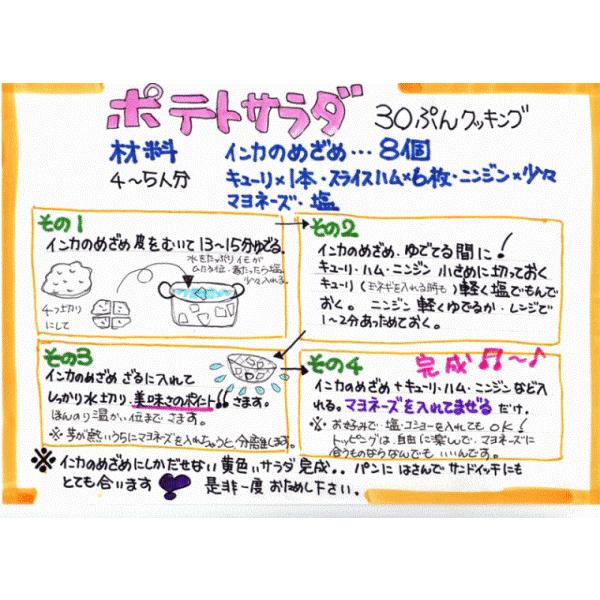 ポテトサラダ 30ぷんクッキング
材料 インカのめざめ・・・8個
4〜5人分 キューリ×1本・スライスハム×6枚・ニンジン×少々
マヨネーズ・塩
その1
インカのめざめ 皮をむいて13〜15分ゆでる。
水をたっぷりイモが
ひたる位・沸たったら塩
少々入れる。
4つ切り
にして
その2
インカのめざめ・ゆでてる間に!
キューリ・ハム・ニンジン 小さめに切っておく
キューリ(玉ネギを入れる時も)軽く塩でもんで
おく。 ニンジン 軽くゆでるか・レンジで
1〜2分あっためておく。
その3
インカのめざめ ざるに入れて
しっかり水切り、美味さのポイント!!さます。
ほんのり温かい位まで さます。
※芋が熱いうちにマヨネーズを入れちゃうと、分離します。
その4 完成♬〜♪
インカのめざめ+キューリ・ハム・ニンジンなど入
れる。マヨネーズを入れてまぜる だけ。
※お好みで、塩・コショーを入れてもOK!
トッピングは、自由に楽しんで・マヨネーズに
合うものならなんでも いいんです。
※インカのめざめにしかだせない 黄色いサラダ 完成.. パンに はさんで サンドイッチにも
とても合います 是非一度 おためし下さい。